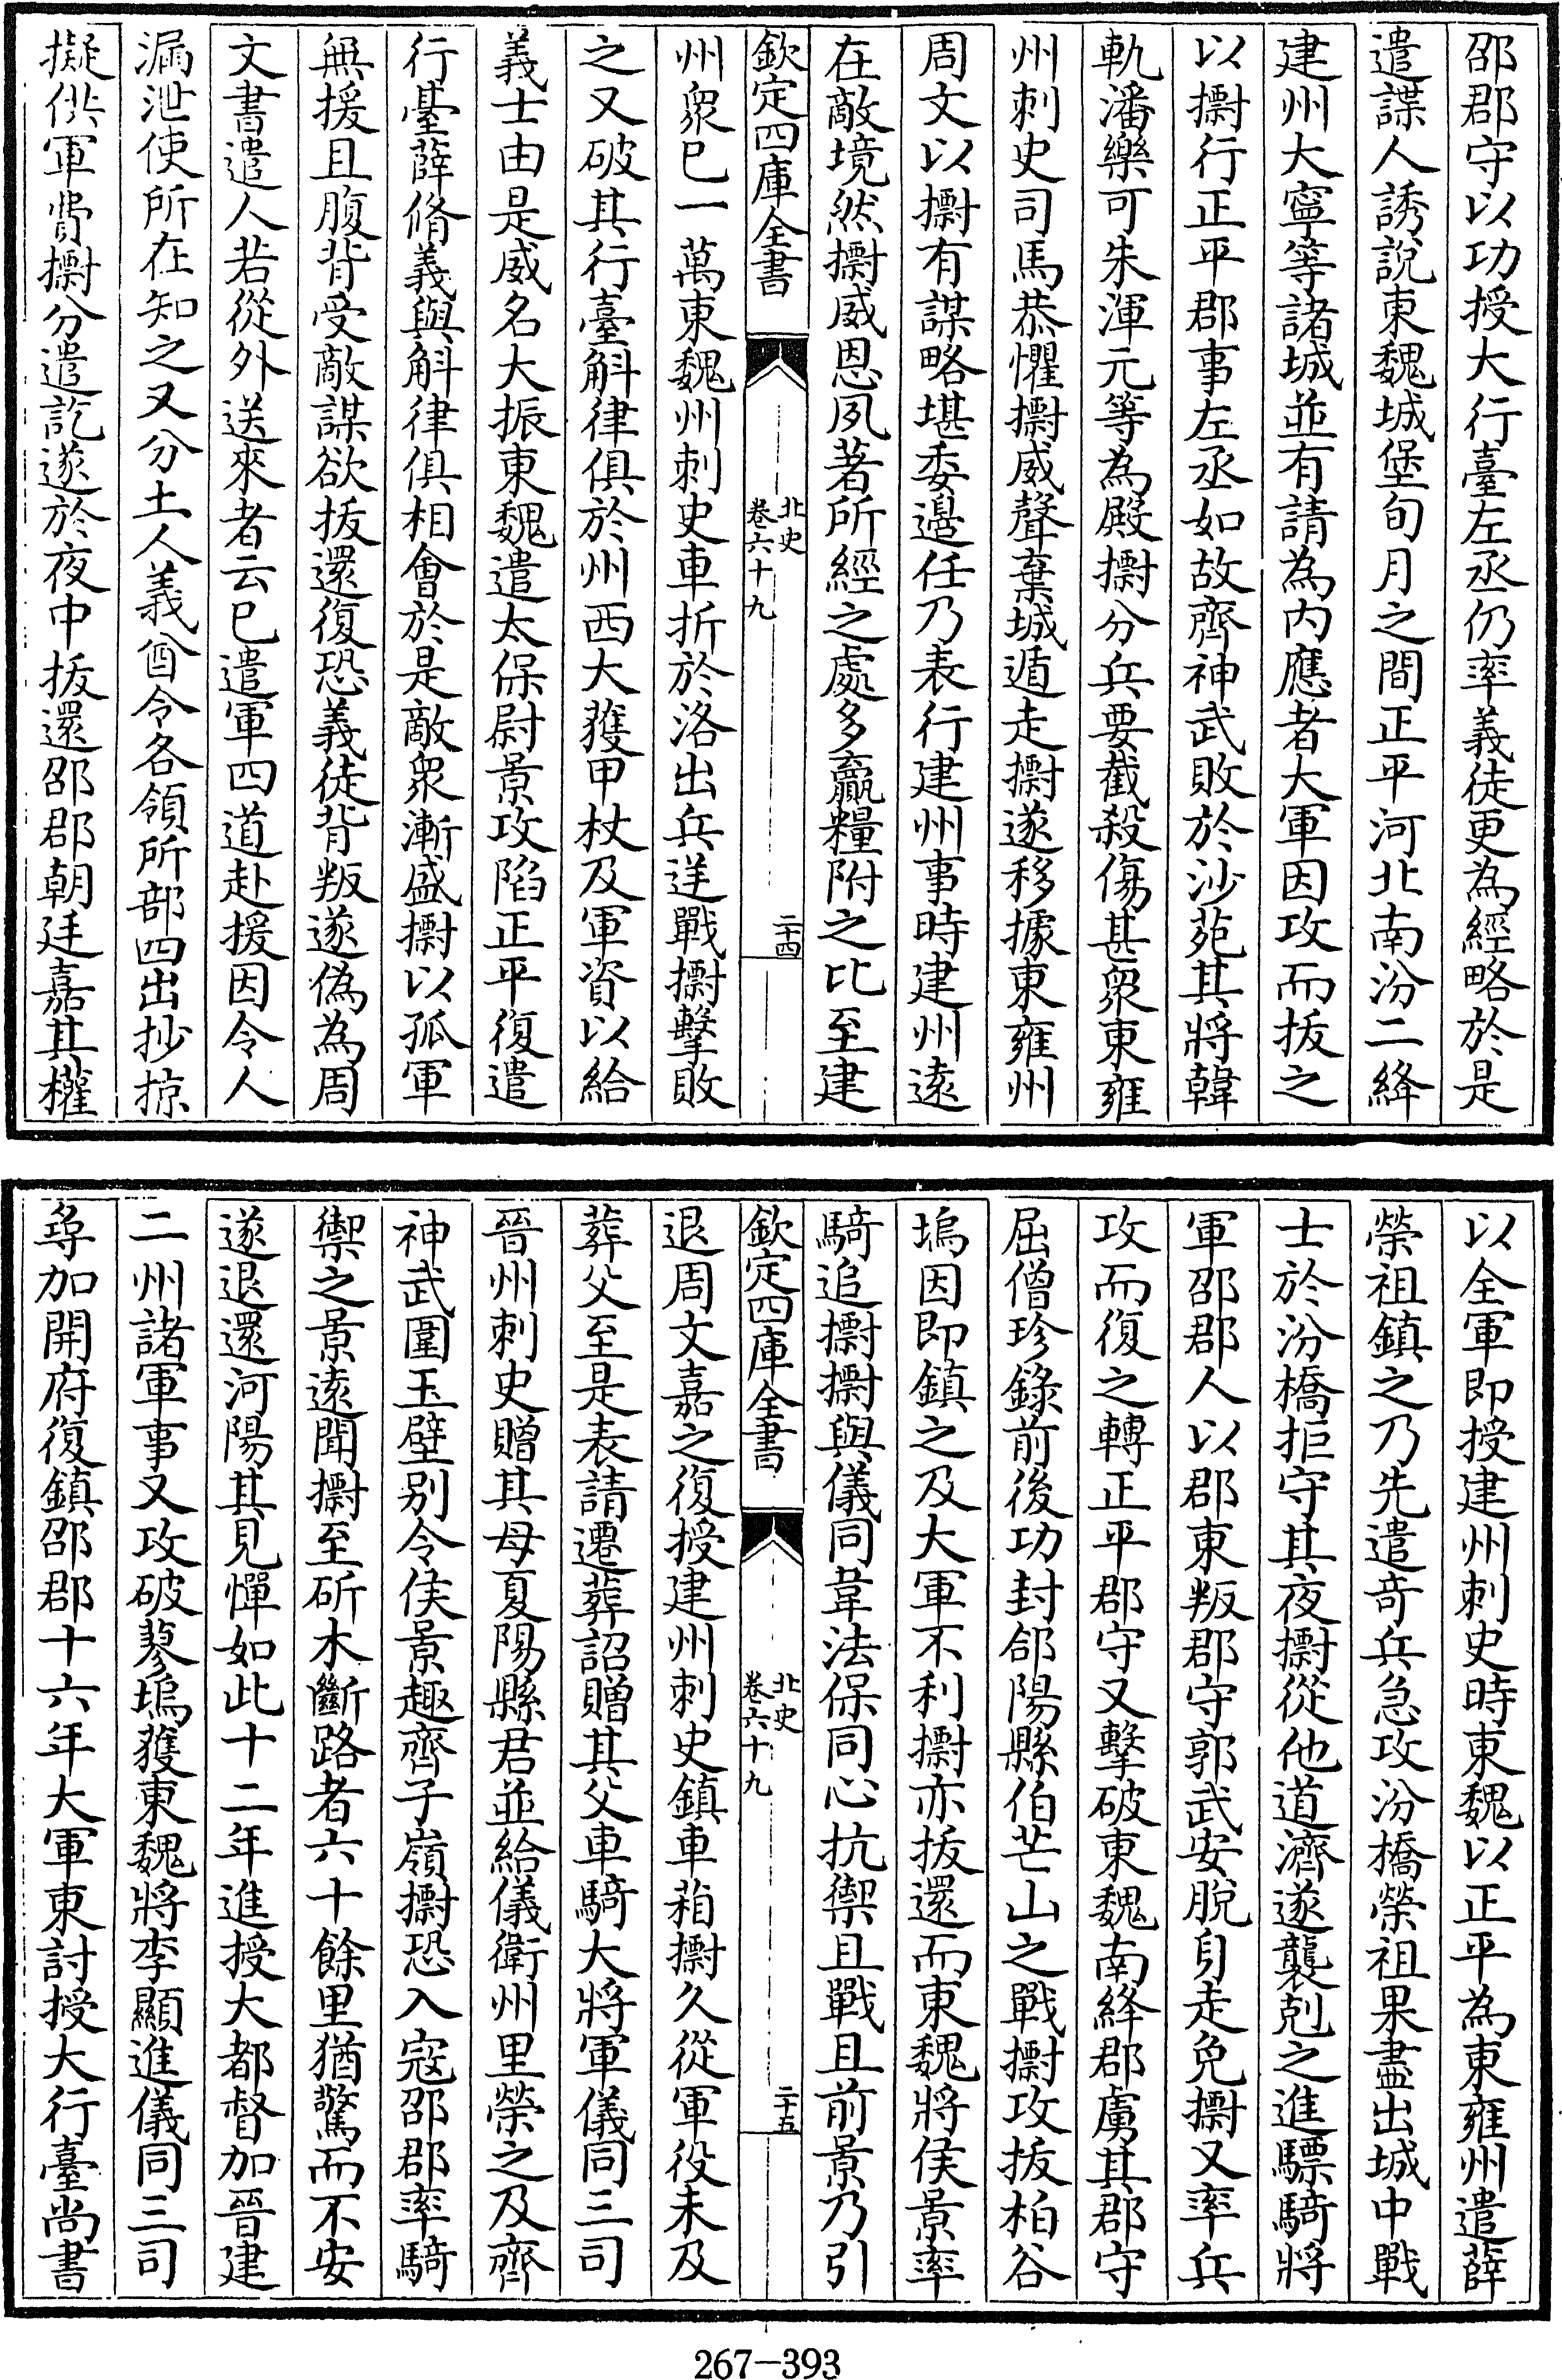 邵郡守以功授大行臺左丞仍率義徒更為經略於是
遣諜人誘說東魏城堡旬月之間正平河北南汾二絳
建州大寧等諸城並有請為內應者大軍因攻而拔之
以𢷋行正平郡事左丞如故齊神武敗於沙苑其將韓
軌潘樂可朱渾元等為殿𢷋分兵要截殺傷甚衆東雍
州刺史司馬恭懼𢷋威聲棄城遁走𢷋遂移據東雍州
周文以𢷋有謀略堪委邊任乃表行建州事時建州逺
在敵境然𢷋威恩夙著所經之處多贏糧附之比至建
欽定四庫全書
北史
卷六十九
二十四
州衆已一萬東魏州刺史車折於洛出兵逆戰𢷋擊敗
之又破其行臺斛律俱於州西大獲甲杖及軍資以給
義士由是威名大振東魏遣太保尉景攻陷正平復遣
行臺薛脩義與斛律俱相會於是敵衆漸盛𢷋以孤軍
無援且腹背受敵謀欲拔還復恐義徒背叛遂偽為周
文書遣人若從外送來者云已遣軍四道赴援因令人
漏泄使所在知之又分土人義酋令各領所部四出抄掠
擬供軍費𢷋分遣訖遂於夜中拔還邵郡朝廷嘉其權
以全軍即授建州刺史時東魏以正平為東雍州遣薛
榮祖鎮之乃先遣竒兵急攻汾橋榮祖果盡出城中戰
士於汾橋拒守其夜𢷋從他道濟遂襲剋之進驃騎將
軍邵郡人以郡東叛郡守郭武安脫身走免𢷋又率兵
攻而復之轉正平郡守又擊破東魏南絳郡虜其郡守
屈僧珍錄前後功封郃陽縣伯芒山之戰𢷋攻拔柏谷
塢因即鎮之及大軍不利𢷋亦拔還而東魏將侯景率
騎追𢷋𢷋與儀同韋法保同心抗禦且戰且前景乃引
欽定四庫全書
北史
卷六十九
二十五
退周文嘉之復授建州刺史鎮車箱𢷋久從軍役未及
葬父至是表請遷葬詔贈其父車騎大將軍儀同三司
晉州刺史贈其母夏陽縣君並給儀衛州里榮之及齊
神武圍玉壁别令侯景趣齊子嶺𢷋恐入寇邵郡率騎
禦之景逺聞𢷋至斫木斷路者六十餘里猶驚而不安
遂退還河陽其見憚如此十二年進授大都督加晉建
二州諸軍事又攻破蓼塢獲東魏將李顯進儀同三司
尋加開府復鎮邵郡十六年大軍東討授大行臺尚書
267-393